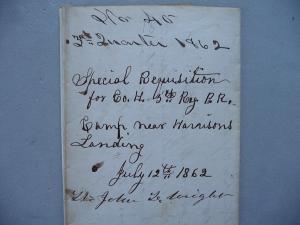 No 40
3d Quarter 1862
Special Requisition
for Co. H. 5th Reg P. R.
Camp near Harrisons
Landing
July 12th 1862
John L. Wright